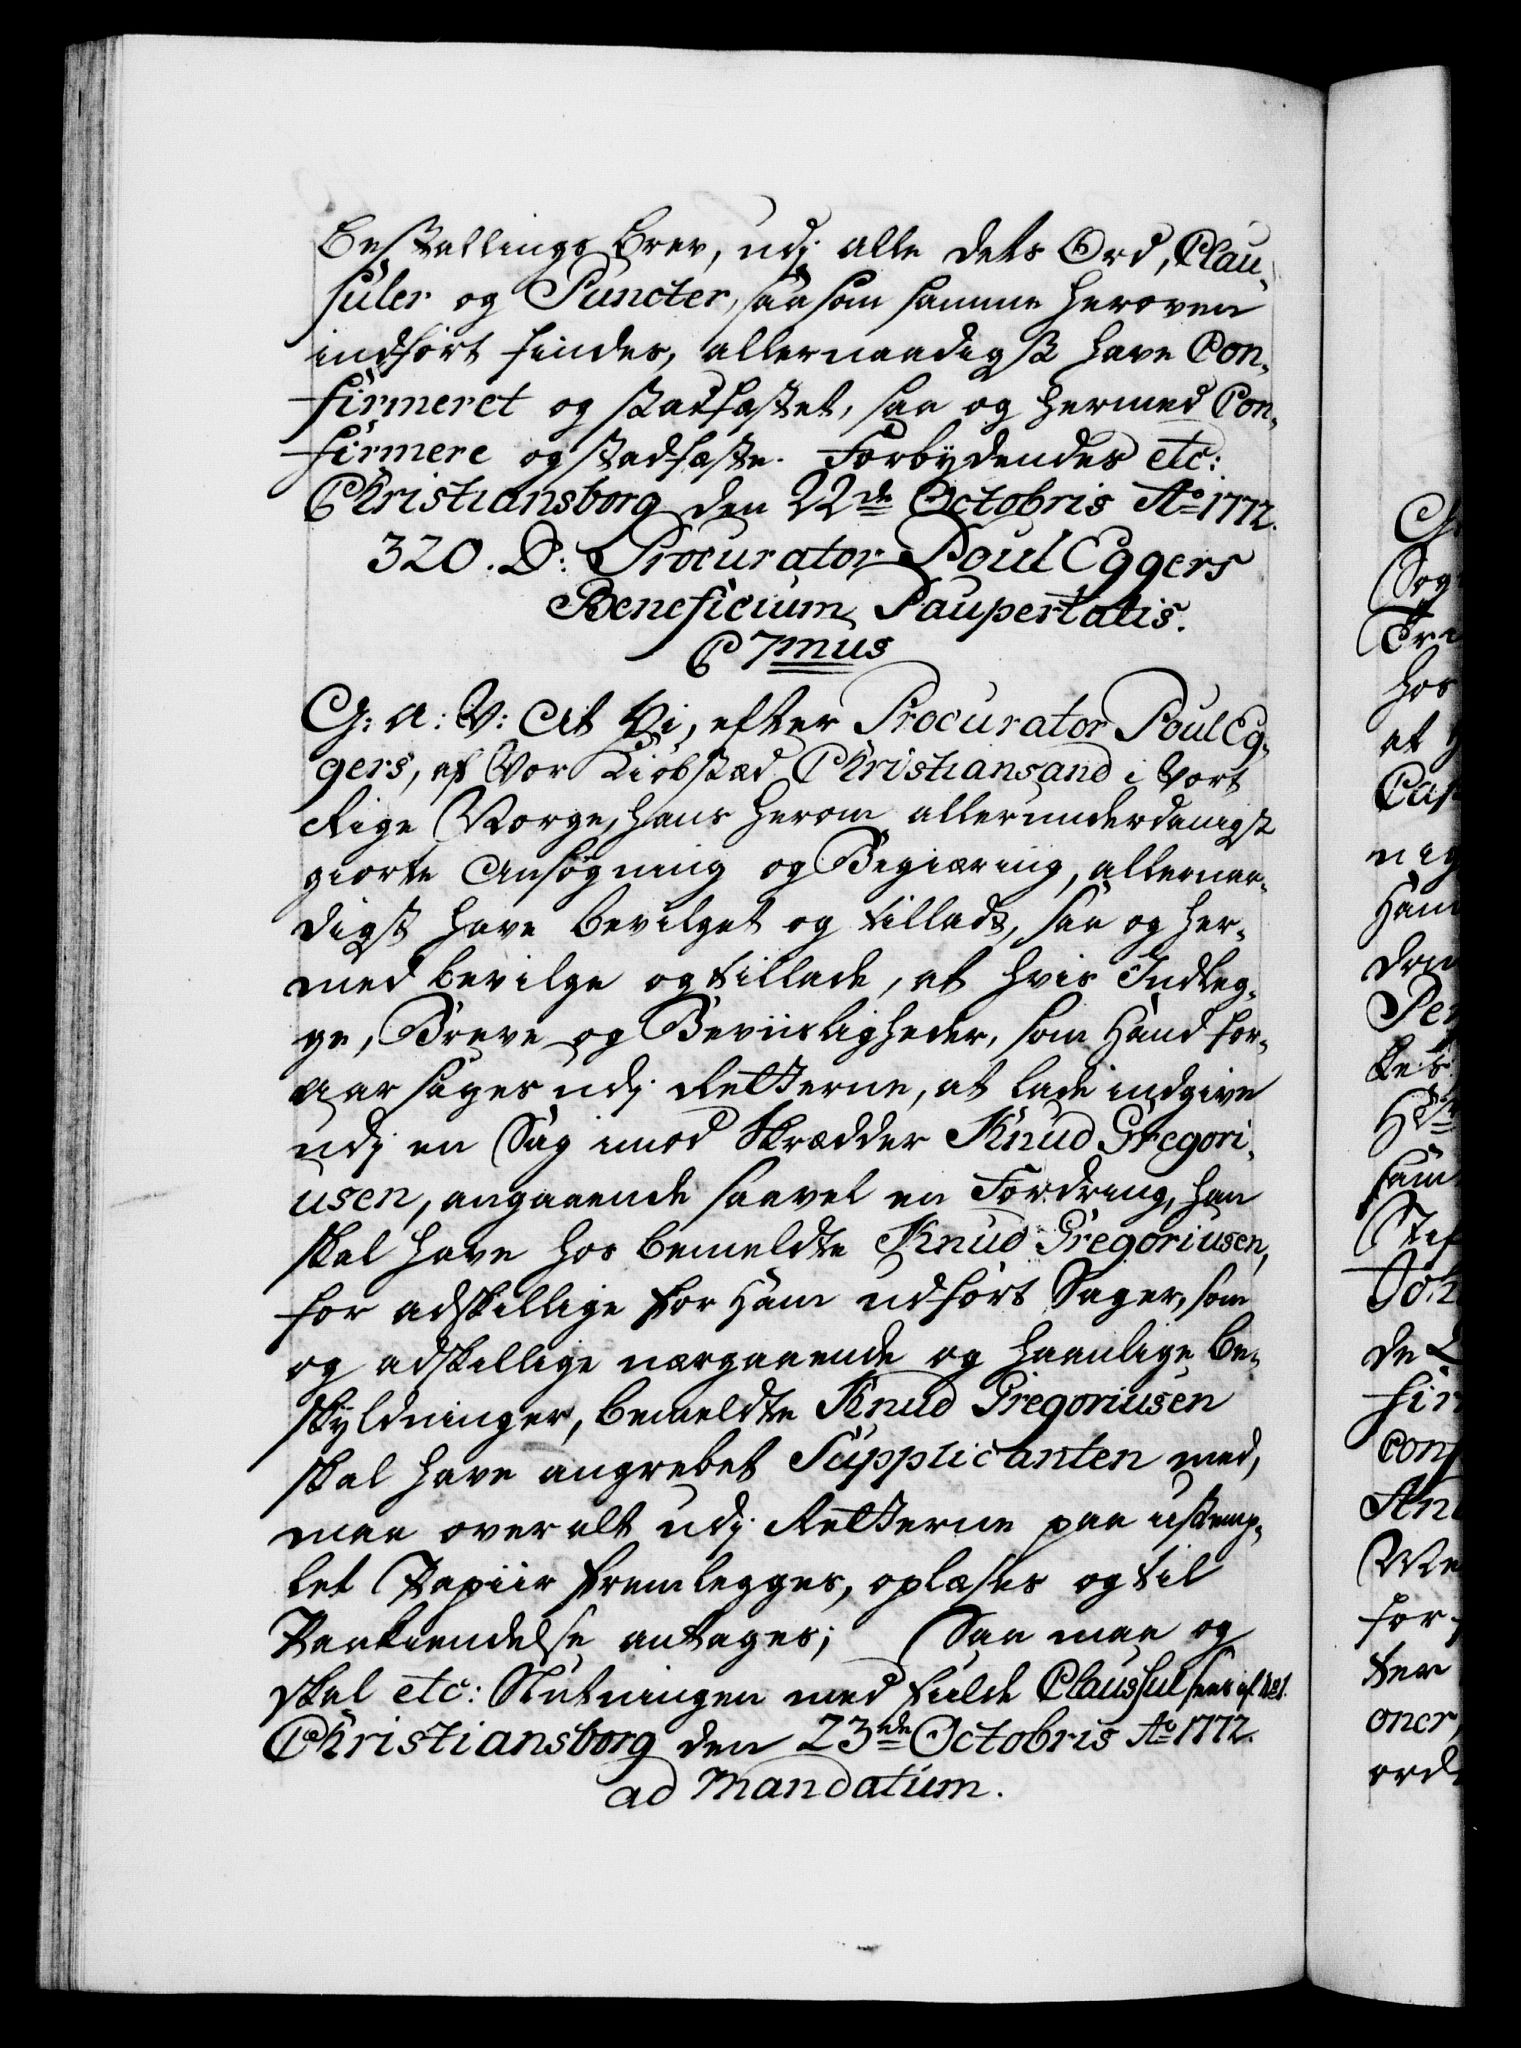 Bestallings Brev, udj alle dets Ord, Clau-
suler og Puncter, saasom samme heroven
indført findes, allernaadigst have Con-
firmeret og stadfæstet, saa og hermed Con-
firmere og stadfæste. Forbydendes etc:
Christiansborg den 22de Octobris Ao 1772.
320. D: Procurator Poul Eggers
Beneficium Paupertatis.
C 7mus
G: A: V: At Vi, efter Procurator Poul Eg-
gers, af Vor Kiøbstæd Christiansand i Vort
Rige Norge, hans herom allerunderdanigst
giorte Ansøgning og Begiæring, allernaa-
digst have bevilget og tilladt, saa og her-
med bevilge og tillade, at hvis Indleg-
ge, Breve og Beviisligheder, som Hand for-
aarsages udj Retterne, at lade indgive
udj en Sag imod Skrædder Knud Gregori-
usen, angaaende saavel en Fordring, han
skal have hos bemeldte Knud Gregoriusen,
for adskillige for Ham udført Sager, som
og adskillige nærgaaende og haanlige be-
skyldninger, bemeldte Knud Gregoriusen
skal have angrebet Supplicanten med,
maa overalt udj Retterne paa ustemp-
let Papiir fremlegges, oplæses og til
Paakiendelse antages; Saa maa og
skal etc: Slutningen med fulde Claussul
Christiansborg den 23de Octobris Ao 1772.
ad Mandatum.